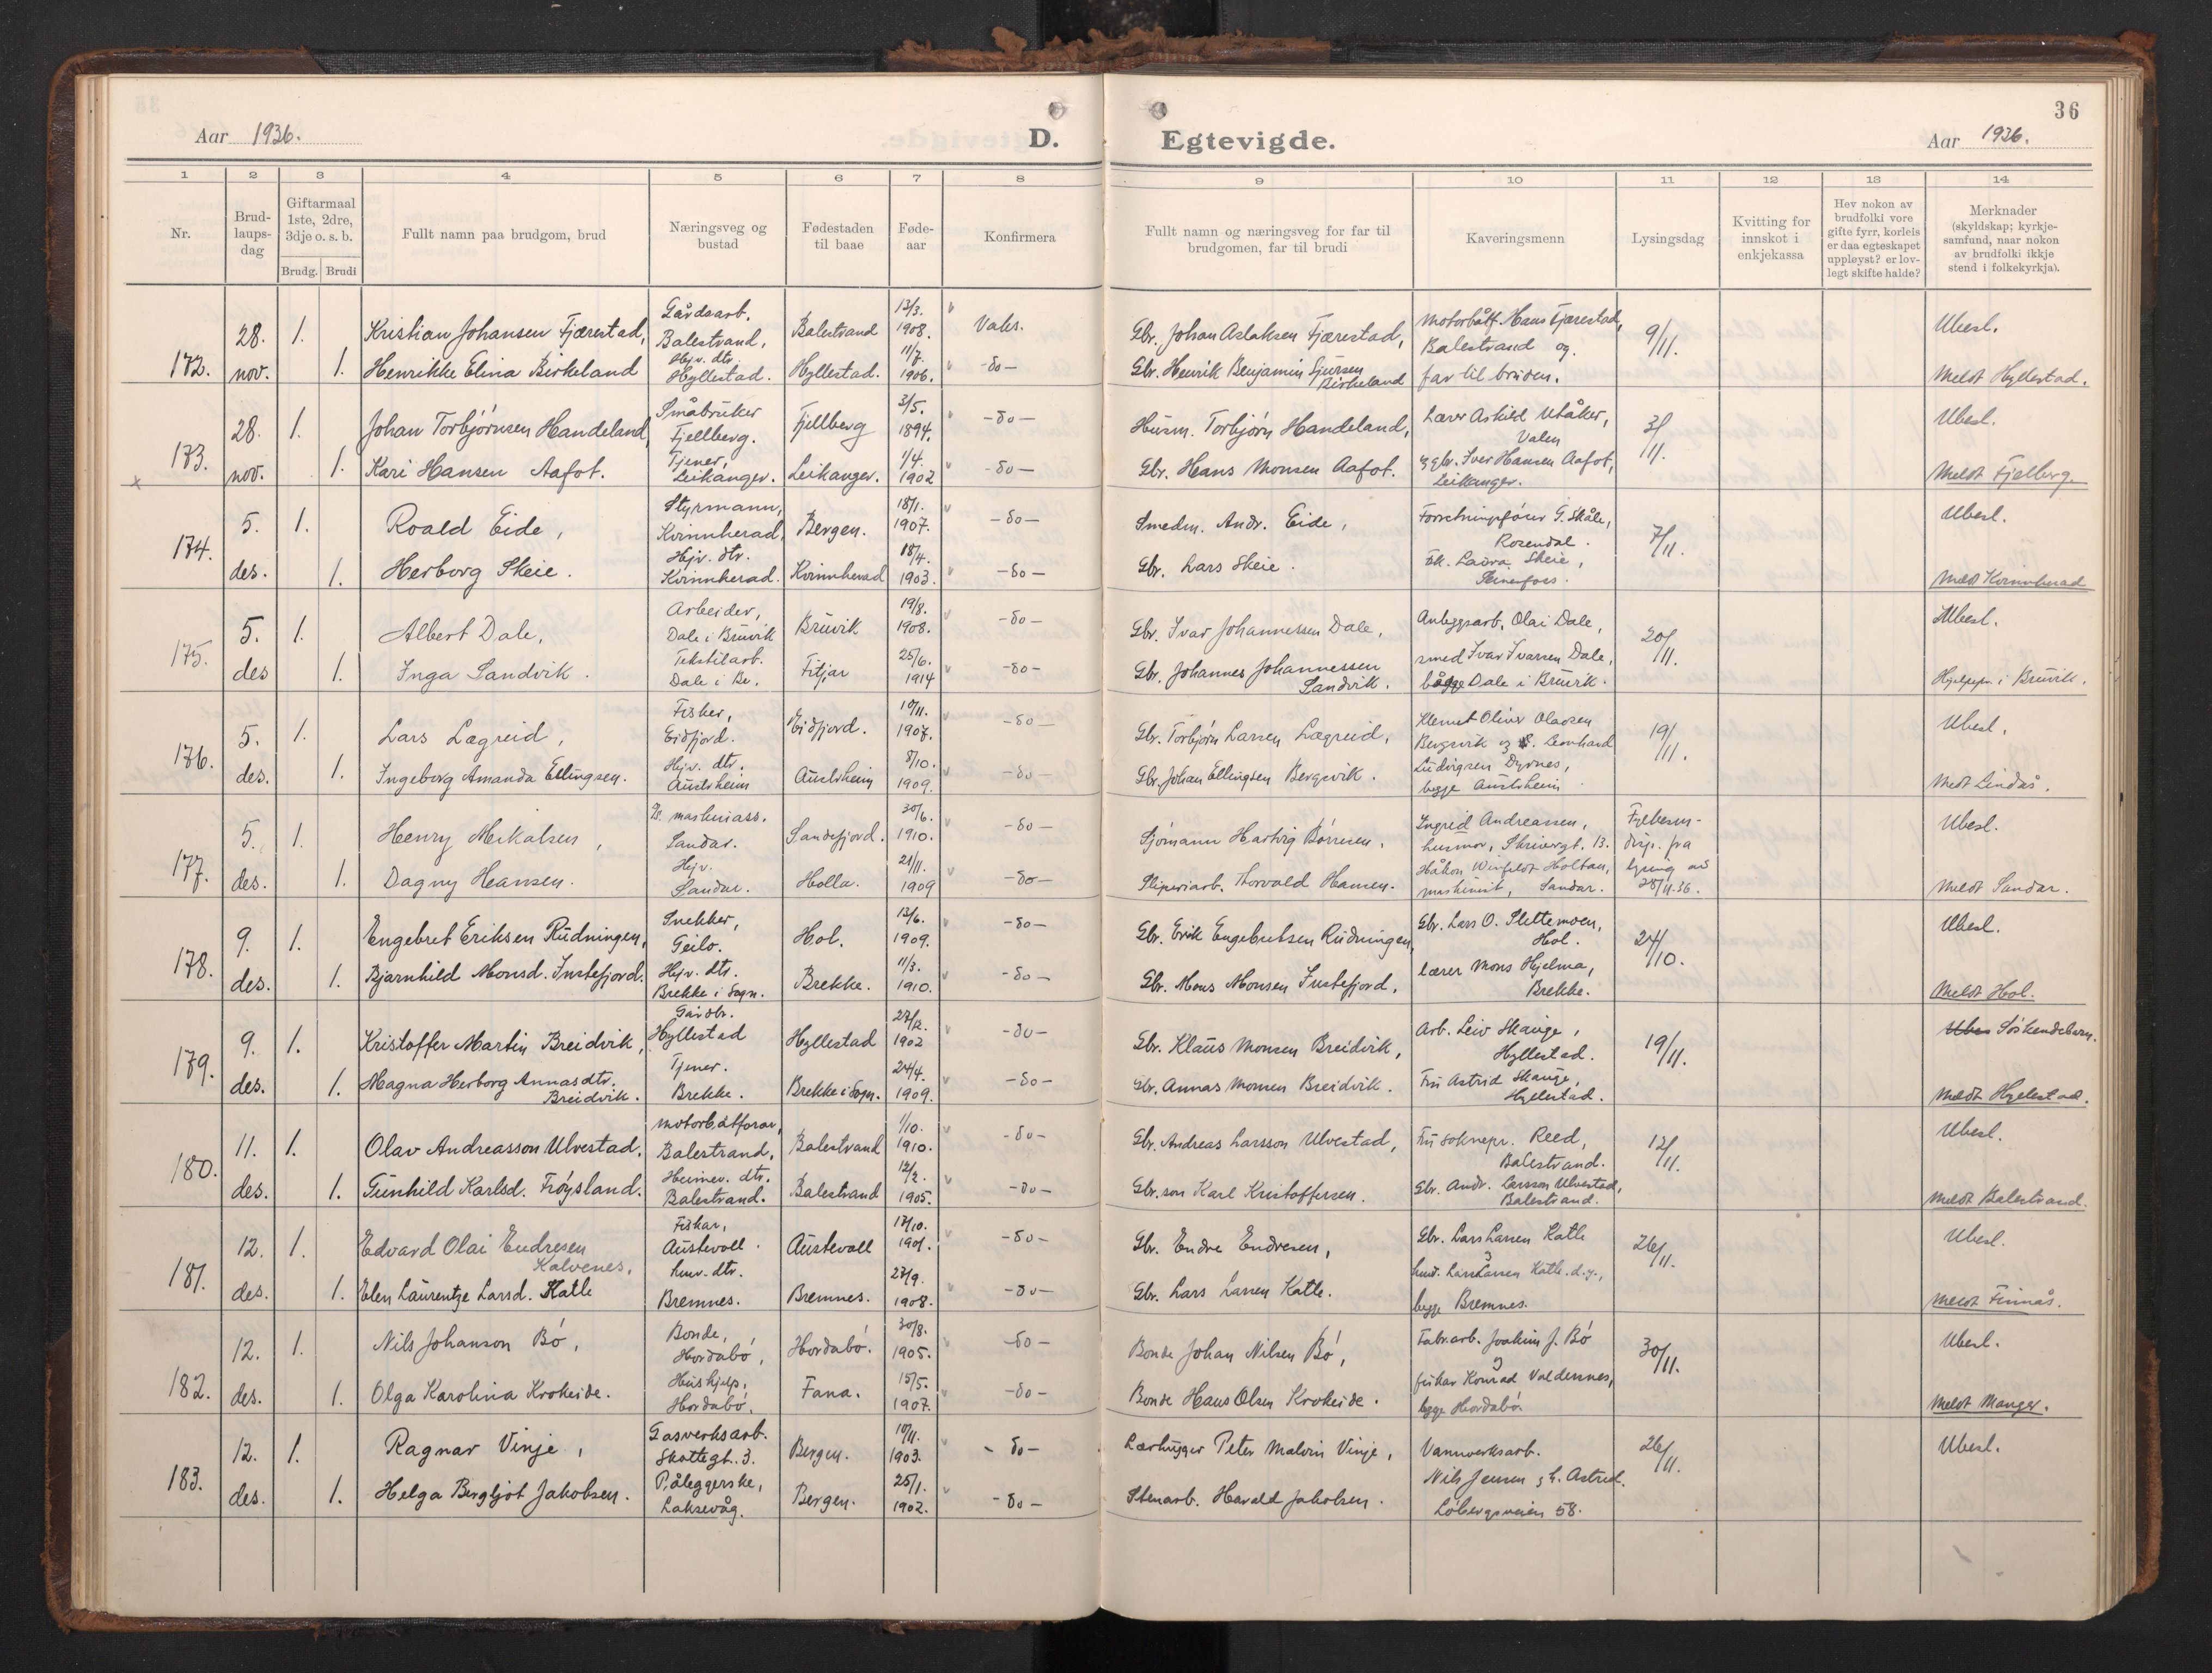 36
Aar 1936. D. Egtevigde. Aar 1936.
1 2 3 4 5 6 7 8 9 10 11 12 13 14
Nr.
Brud-
laups-
dag
Giftarmaal
1ste, 2dre,
3dje o. s. b.
Brudg. Brudi
Fullt namn paa brudgom, brud
Næringsveg og
bustad
Fødestaden
til baae
Føde-
aar
Konfirmera
Fullt namn og næringsveg for far til
brudgomen, far til brudi
Kaveringsmenn
Lysingsdag
Kvitting for
innskot i
enkjekassa
Hev nokon av
brudfolki vore
gifte fyrr, korleis
er daa egteskapet
uppløyst? er lov-
legt skifte halde?
Merknader
(skyldskap; kyrkje-
samfund, naar nokon
av brudfolki ikkje
stend i folkekyrkja).
172. 28. nov. 1. 1.
Kristian Johansen Fjærestad,
Gårdsarb.
Balestrand,
Balestrand
13/3.
1908.
Vaks.
Gbr. Johan Aslaksen Fjærestad,
Motorbåtf. Hans Fjærestad,
Balestrand og
far til bruden.
9/11.
Ubesl.
Henrikke Elina Birkeland
Hejv. dtr.
Hyllestad.
Hyllestad.
11/7.
1906.
-do-
Gbr. Henrik Benjamin Sjursen
Birkeland
Meldt Hyllestad.
173. 28. nov. 1. 1.
Johan Torbjørnsen Handeland,
Småbruker
Fjellberg.
Fjellberg
3/5.
1894.
-do-
Husm. Torbjørn Handeland,
Lærer Askild Utåker,
Valen
3/11.
Ubesl.
x
Kari Hansen Aafot.
Tjener,
Leikanger.
Leikanger.
1/4.
1902
-do-
Gbr. Hans Monsen Aafot.
og gbr. Iver Hansen Aafot,
Leikanger.
Meldt Fjelberg
174. 5. des. 1. 1.
Roald Eide,
Styrmann,
Kvinnherad,
Bergen.
18/1.
1907.
-do-
Smedm. Andr. Eide,
Forretningsfører G. Skåle,
Rosendal.
7/11.
Ubesl.
Herborg Skeie.
Hejv. dtr.
Kvinnherad.
Kvinnherad
18/4.
1903.
-do-
Gbr. Lars Skeie.
Frk. Laura Skeie,
Meldt Kvinnherad
175. 5. des 1. 1.
Albert Dale,
Arbeider,
Dale i Bruvik
Bruvik
19/8.
1908.
-do-
Gbr. Ivar Johannessen Dale,
Anleggsarb. Olai Dale,
smed Ivar Ivarsen Dale,
begge Dale i Bruvik.
20/11.
Ubesl.
Inga Sandvik.
Tekstilarb.
Dale i Br.
Fitjar
25/6.
1914
-do-
Gbr. Johannes Johannessen
Sandvik.
Hjelpepr. i Bruvik.
176. 5. des. 1. 1.
Lars Lægreid,
Fisker,
Eidfjord.
Eidfjord.
10/11.
1907.
-do-
Gbr. Torbjørn Larsen Lægreid,
Klemet Oliver Olavsen
Bergsvik og S. Leonhard
Ludvigsen Dyrnes,
begge Austrheim
19/11.
Ubesl.
Ingeborg Amanda Ellingsen.
Hejv. dtr.
Austrheim
Austrheim
8/10.
1909.
-do-
Gbr. Johan Ellingsen Bergsvik.
Meldt Lindås.
177. 5. des. 1. 1.
Henry Mikalsen,
maskinass.
Sandar.
Sandefjord.
30/6.
1910.
-do-
Sjømann Hartvig Børresen,
Ingrid Andreassen,
husmor, Skrivergt. 13.
Håkon Winfeldt Holtan,
maskinist, Sandar.
Fylkesm-
disp. fra
lysing av
28/11.36.
Ubesl.
Dagny Hansen.
Hejv.
Sandar.
Holla.
21/11.
1909
-do-
Sliperiarb. Thorvald Hansen.
Meldt Sandar.
178. 9. des. 1. 1.
Engebret Eriksen Rudningen,
Snekker,
Geilo.
Hol.
13/6.
1909.
-do-
Gbr. Erik Engebretsen Rudningen,
Gbr. Lars O. Slettemoen,
Hol.
24/10.
Ubesl.
Bjarnhild Monsd. Instefjord.
Hejv. dtr.
Brekke i Sogn.
Brekke.
11/3.
1910.
-do-
Gbr. Mons Monsen Instefjord,
lærer Mons Hjelma,
Brekke.
Meldt Hol.
179. 9. des. 1. 1.
Kristoffer Martin Breidvik,
Gårdbr.
Hyllestad
Hyllestad
27/2.
1902
-do-
Gbr. Klaus Monsen Breidvik,
Arb. Leiv Skauge,
Hyllestad.
19/11.
Ubes Søskendebarn.
Magna Herborg Annasdtr.
Breidvik.
Tjener.
Brekke.
Brekke i Sogn.
24/4.
1909.
-do-
Gbr. Annas Monsen Breidvik.
Fru Astrid Skauge,
Hyllestad.
Meldt Hyllestad.
180. 11. des. 1. 1.
Olav Andreasson Ulvestad.
motorbåtførar,
Balestrand,
Balestrand
1/10.
1910.
-do-
Gbr. Andreas Larsson Ulvestad,
Fru soknepr. Reed,
Balestrand.
12/11.
Ubesl.
Gunhild Karlsd. Frøysland.
Heimev. dtr.
Balestrand.
Balestrand
12/2.
1905.
-do-
Gbr.son Karl Kristoffersen.
Gbr. Andr. Larsson Ulvestad,
Balestrand.
Meldt Balestrand.
181. 12. des. 1. 1.
Edvard Olai Endresen
Kalvenes,
Fiskar,
Austevoll.
Austevoll
17/10.
1901.
-do-
Gbr. Endre Endresen,
Gbr. Lars Larsen Katle
og
Lars Larsen Katle d.y.,
begge Bremnes.
26/11.
Ubesl.
Elen Laurentze Larsd. Katle
husv. dtr.
Bremnes.
Bremnes.
27/9.
1908.
-do-
Gbr. Lars Larsen Katle.
Meldt Finnås.
182. 12. des. 1. 1.
Nils Johanson Bø,
Bonde,
Hordabø,
Hordabø.
30/8.
1905.
-do-
Bonde Johan Nilsen Bø,
Fabr.arb. Joakim J. Bø
og
fiskar Konrad Valdersnes,
begge Hordabø
30/11.
Ubesl.
Olga Karolina Krokeide.
Hushjelp,
Hordabø.
Fana.
15/5.
1907.
-do-
Bonde Hans Olsen Krokeide.
Meldt Manger.
183. 12. des. 1. 1.
Ragnar Vinje,
Gasverksarb.
Skottegt. 3.
Bergen.
10/11.
1903.
-do-
Peter Malvin Vinje,
Vannverksarb.
Nils Jensen og h. Astrid.
Løbergsveien 58.
26/11.
Ubesl.
Helga Bergljot Jakobsen.
Påleggerske,
Laksevåg.
Bergen.
25/1.
1902.
-do-
Stenarb. Harald Jakobsen.